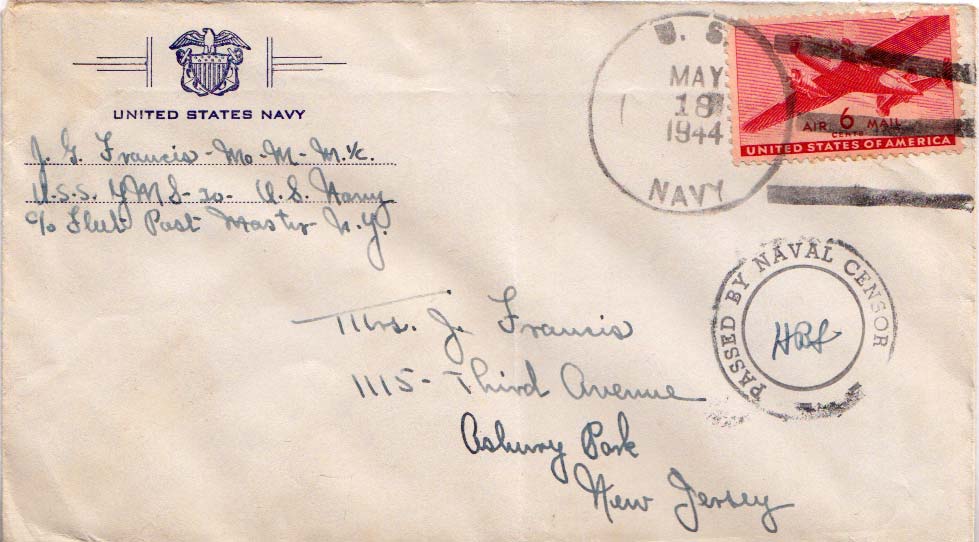 UNITED STATES NAVY
J. G. Francis - Mo. M. M. 1/c.
U.S.S. YMS-20- U.S. Navy
c/o Fleet Post Master N.Y.
U. S.
MAY
18
1944
NAVY
AIR 6 MAIL
CENTS
UNITED STATES OF AMERICA
PASSED BY NAVAL CENSOR
Mrs. J. Francis
1115 - Third Avenue
Asbury Park
New Jersey